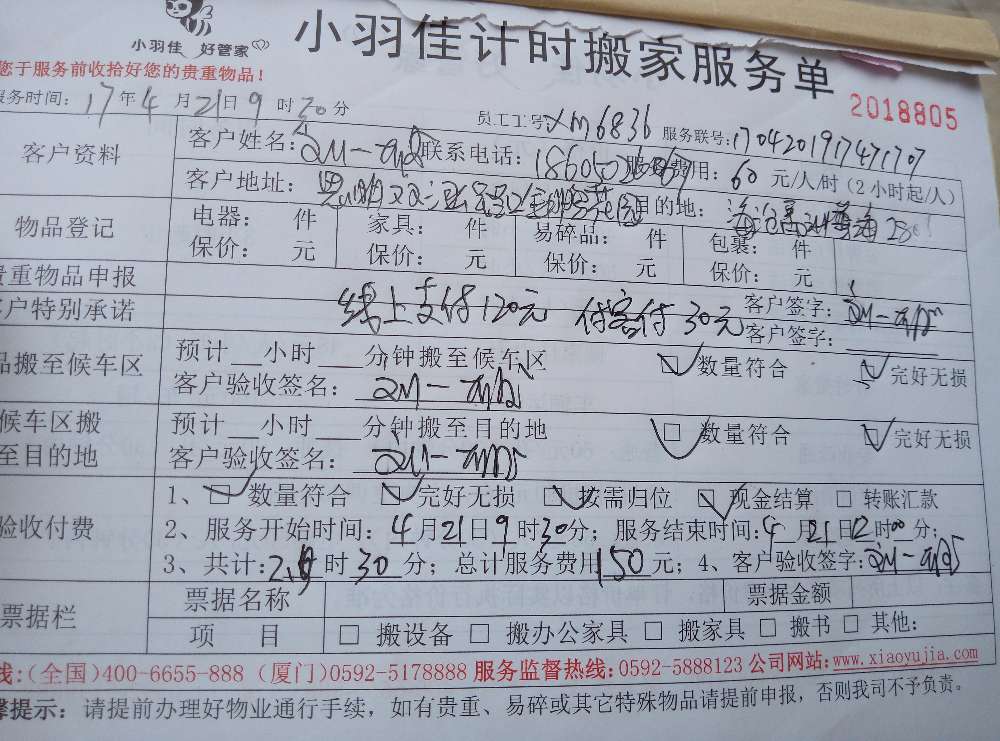 小羽佳 好管家
小羽佳计时搬家服务单
您于服务前收拾好您的贵重物品！
2018805
服务时间：17年4月21日9时30分 员工工号：XM6836 服务联号：1704201917471707
客户资料
客户姓名： 联系电话： 服务费用：60元/人/时（2小时起/人）
客户地址： 目的地：
物品登记
电器： 件 家具： 件 易碎品： 件 包裹： 件
保价： 元 保价： 元 保价： 元 保价： 元
贵重物品申报
客户签字：
客户特别承诺 线上支付120元 付 30元 客户签字：
品搬至候车区
预计__小时___分钟搬至候车区 数量符合 完好无损
客户验收签名：
候车区搬
至目的地
预计__小时___分钟搬至目的地 数量符合 完好无损
客户验收签名：
验收付费
1、数量符合 完好无损 按需归位 现金结算 转账汇款
2、服务开始时间：4月21日9时30分；服务结束时间：4月21日12时00分；
3、共计：2时30分；总计服务费用150元；4、客户验收签字：
票据栏
票据名称 票据金额
项 目 搬设备 搬办公家具 搬家具 搬书 其他：
线：(全国)400-6655-888 (厦门)0592-5178888 服务监督热线：0592-5888123 公司网站：www.xiaoyujia.com
馨提示：请提前办理好物业通行手续，如有贵重、易碎或其它特殊物品请提前申报，否则我司不予负责。